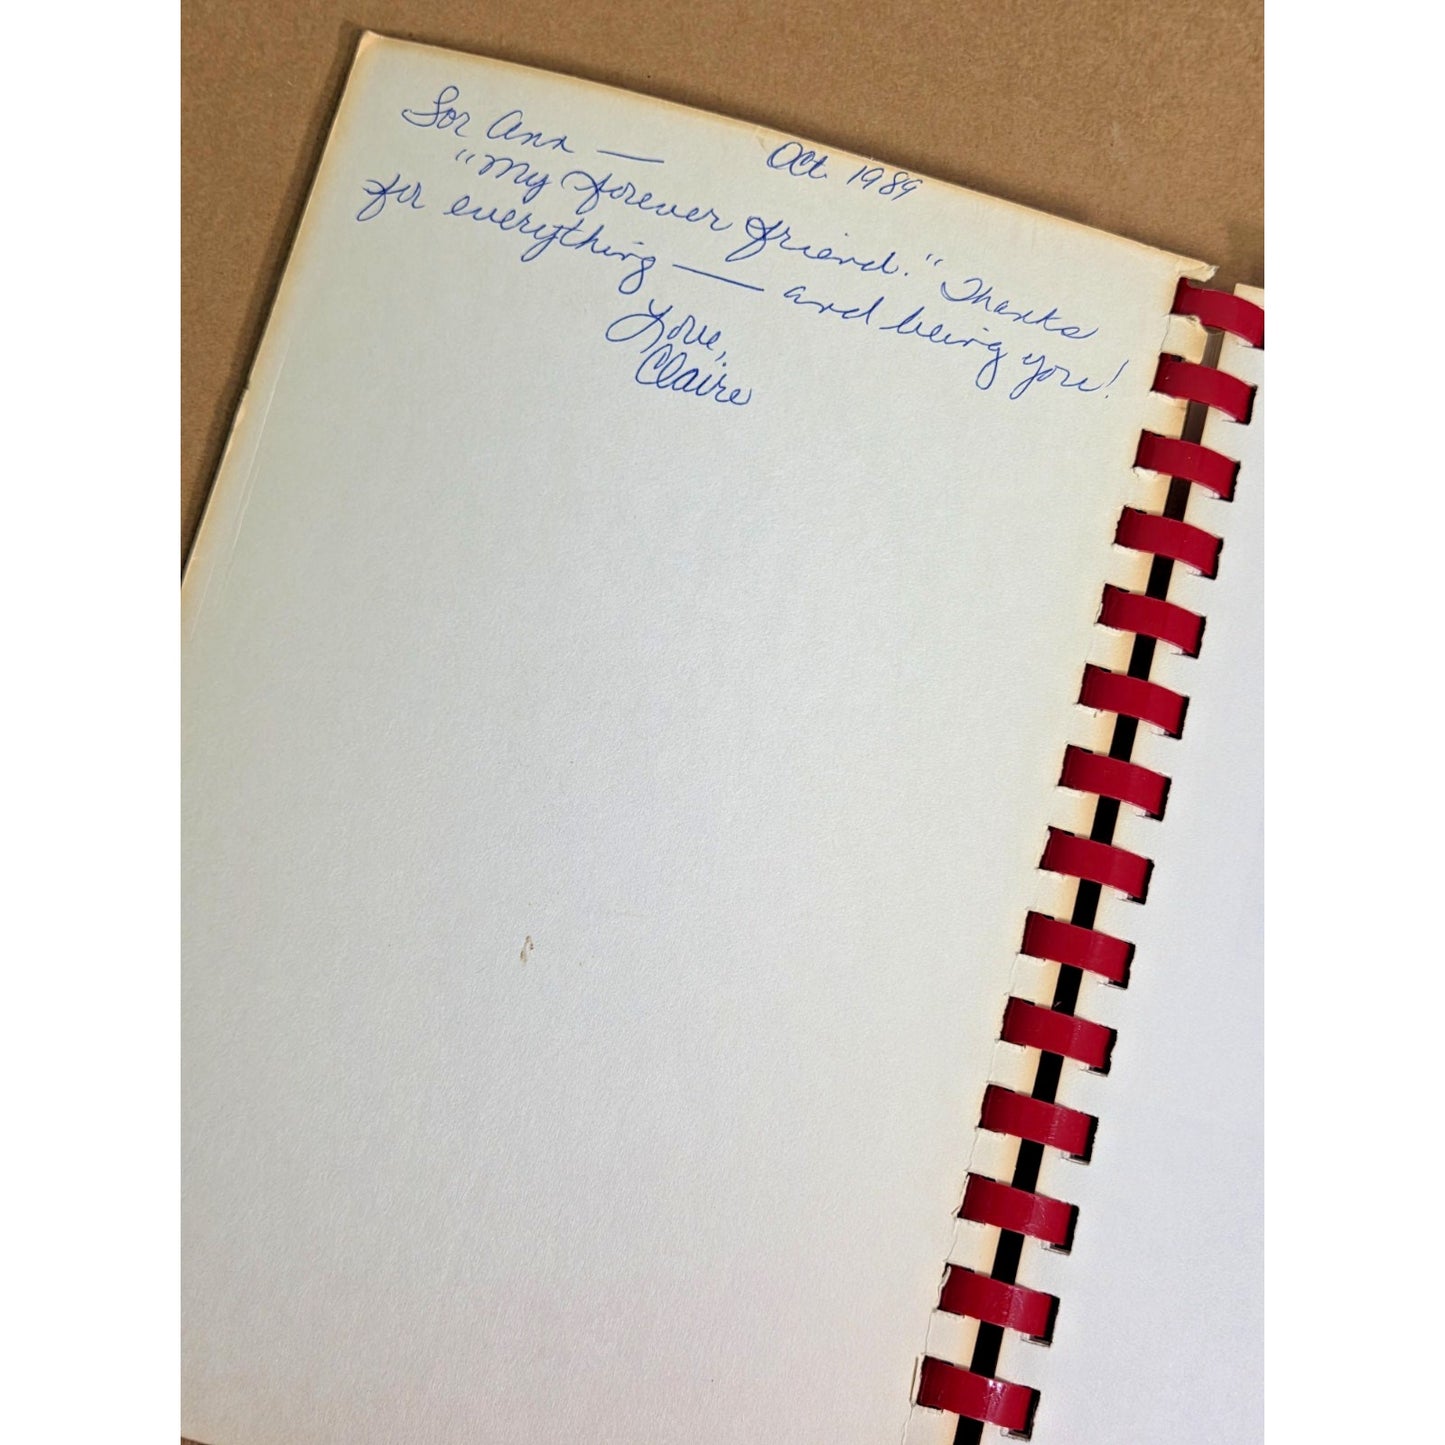 For Ann — Oct 1989
"My forever friend." Thanks
for everything — and being you!
Love,
Claire